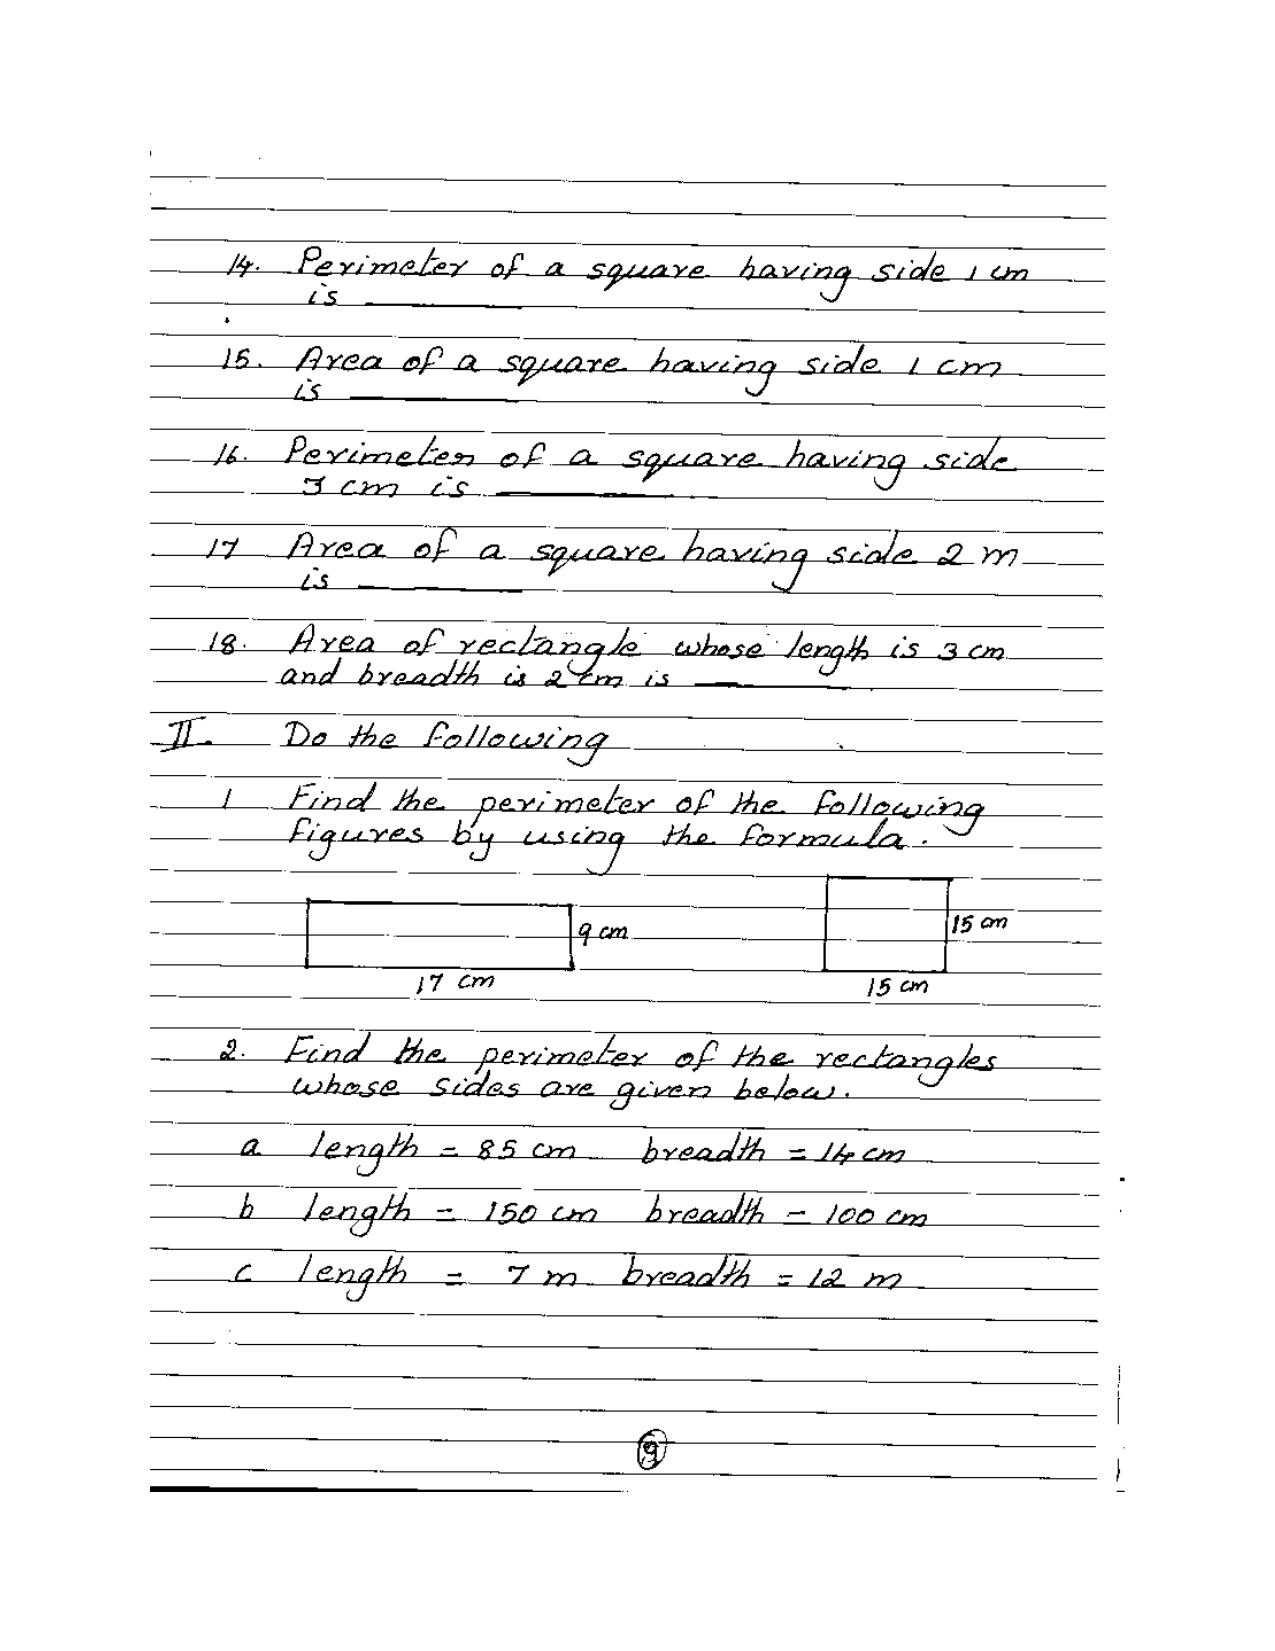 14. Perimeter of a square having side 1 cm
is
15. Area of a square having side 1 cm
is
16. Perimeter of a square having side
3 cm is
17 Area of a square having side 2 m
is
18. Area of rectangle whose length is 3 cm
and breadth is 2 cm is
II. Do the following
1 Find the perimeter of the following
figures by using the formula.
9 cm
17 cm
15 cm
15 cm
2. Find the perimeter of the rectangles
whose sides are given below.
a length = 85 cm breadth = 14 cm
b length = 150 cm breadth = 100 cm
c length = 7 m breadth = 12 m
9